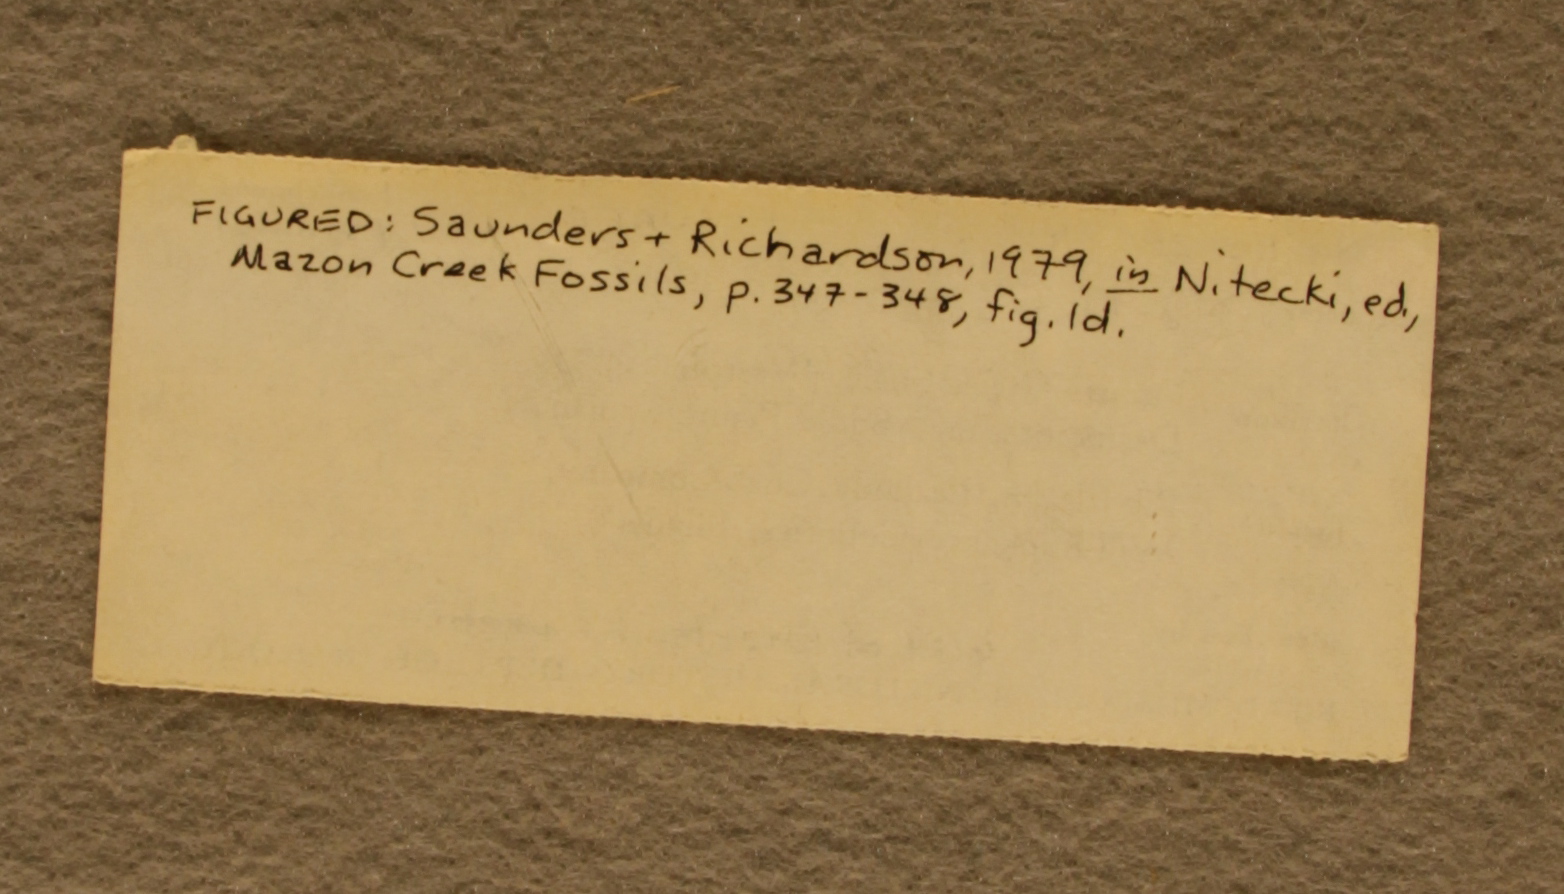 FIGURED: Saunders + Richardson, 1979, in Nitecki, ed.,
Mazon Creek Fossils, p. 347-348, fig. 1d.